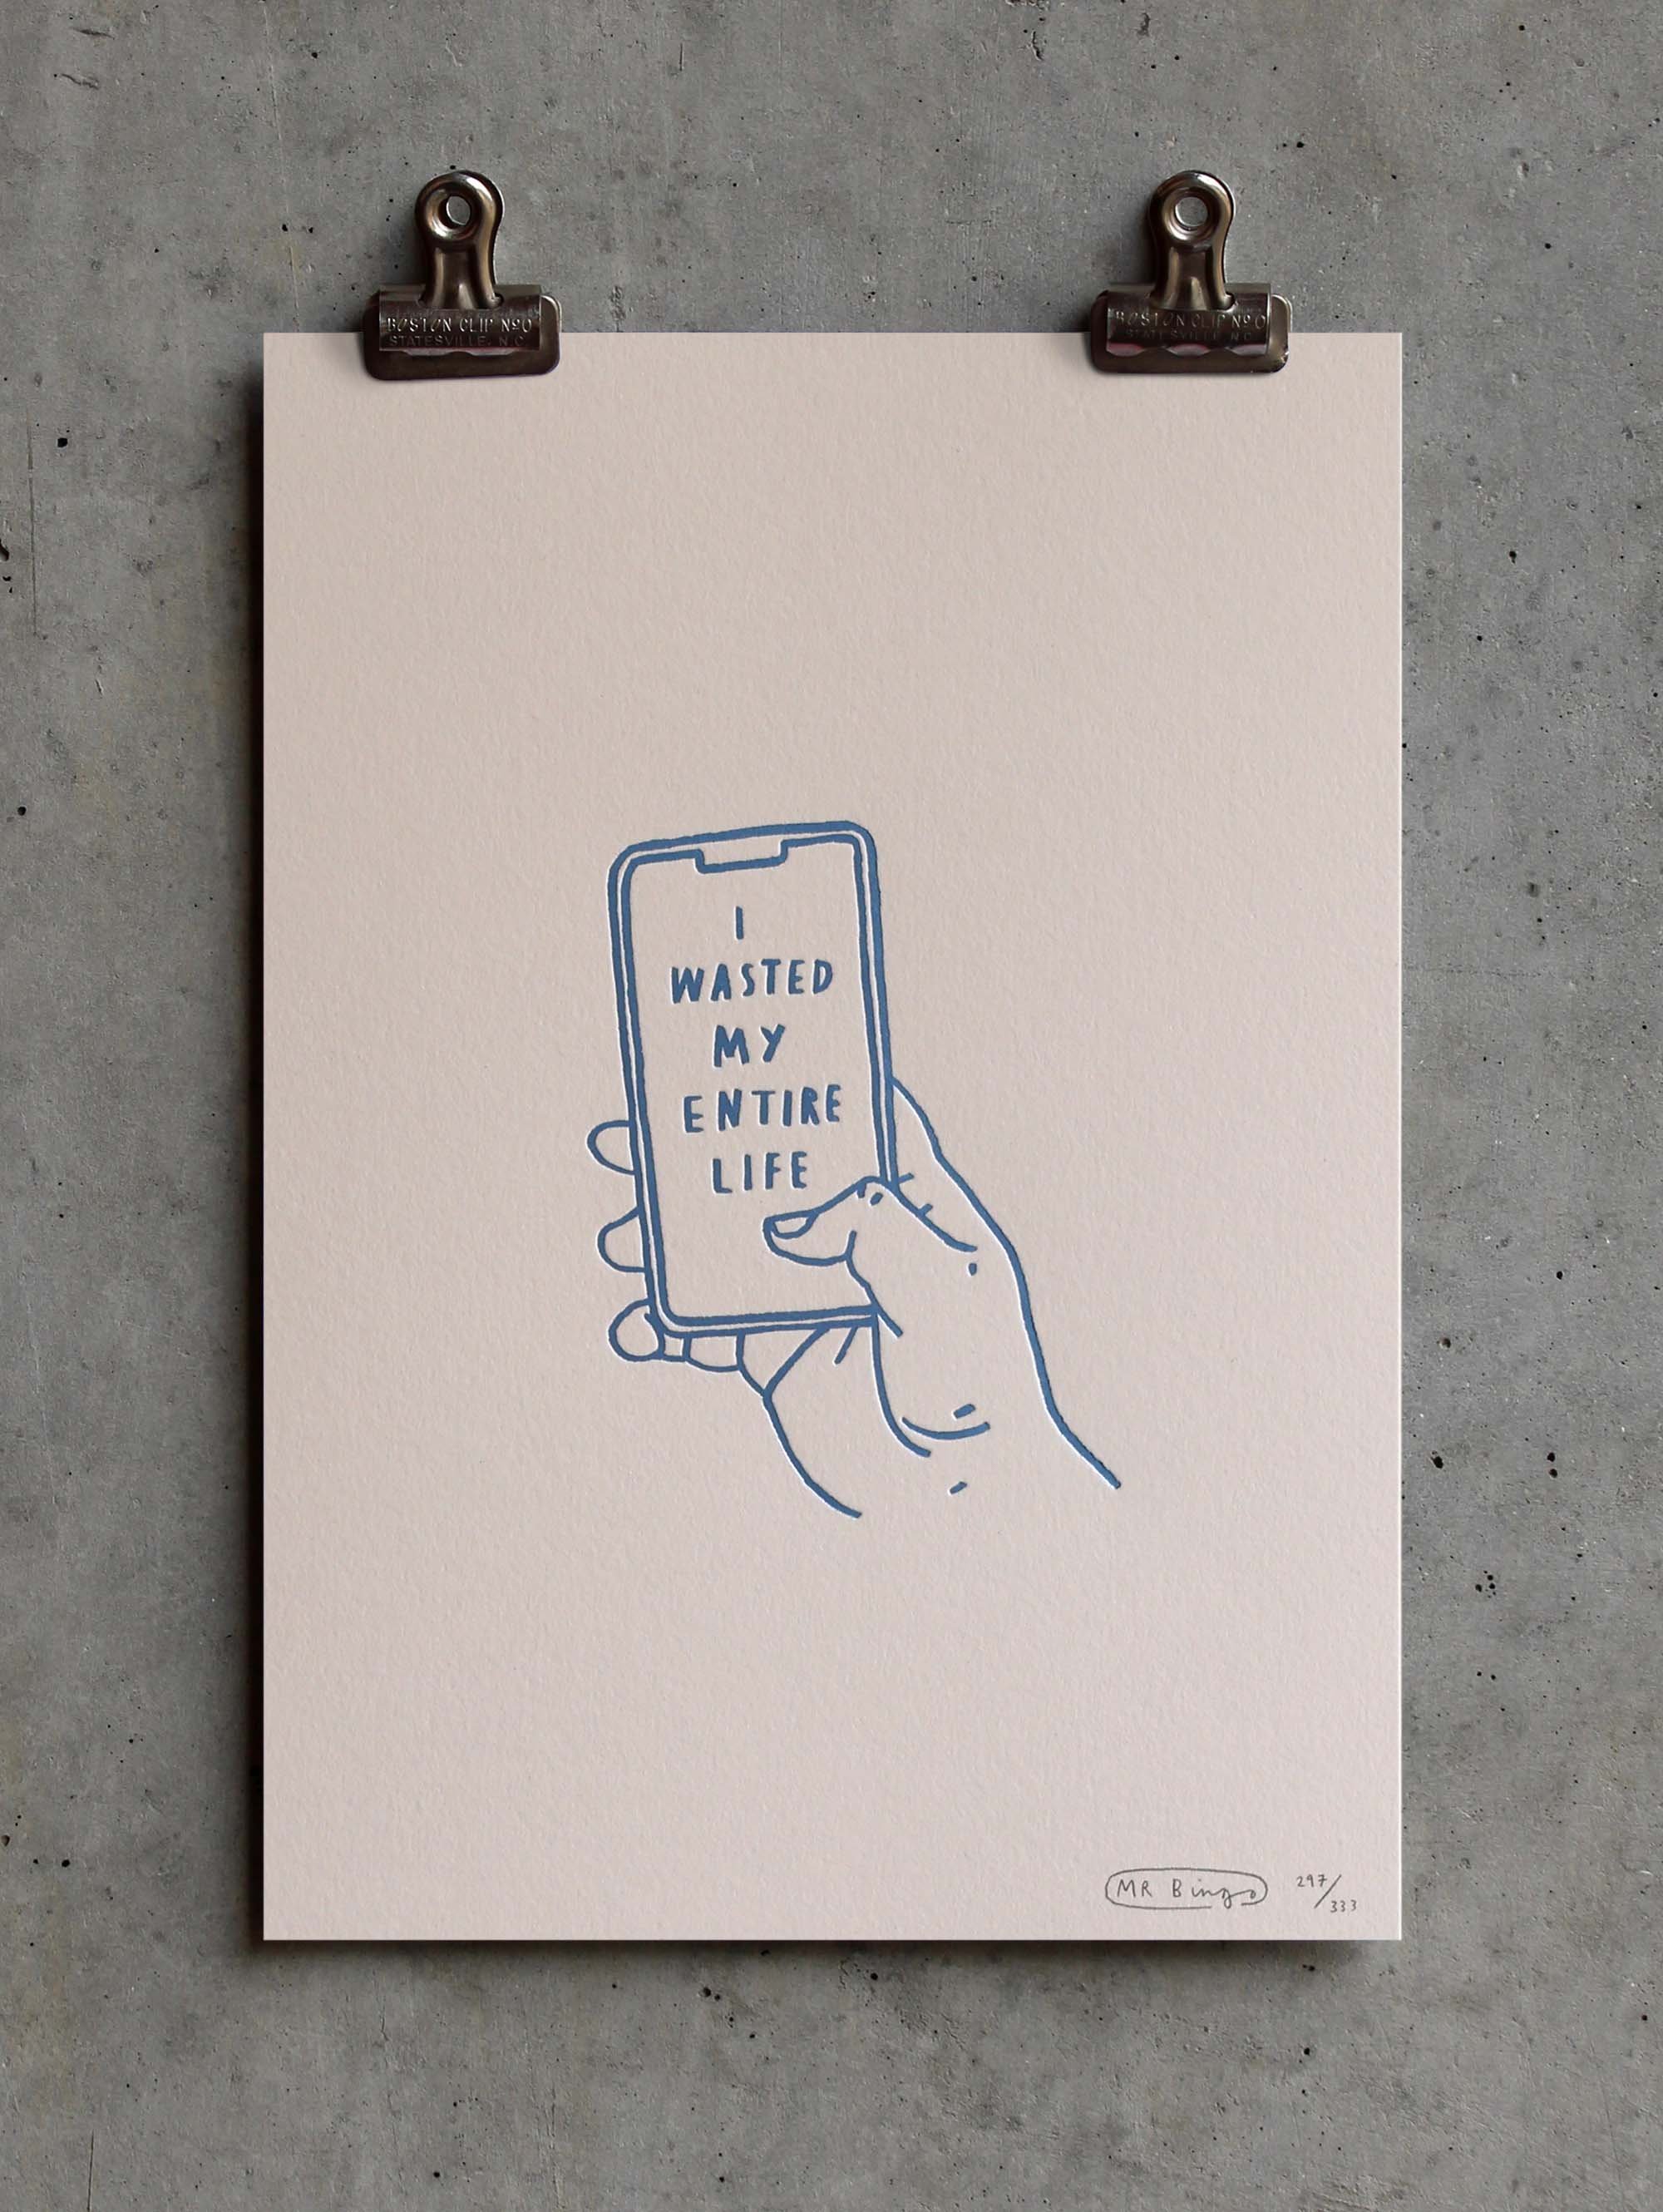 BOSTON CLIP Nº0
STATESVILLE, N.C.
BOSTON CLIP Nº0
STATESVILLE N.C.
I
WASTED
MY
ENTIRE
LIFE
MR Bingo 297/333